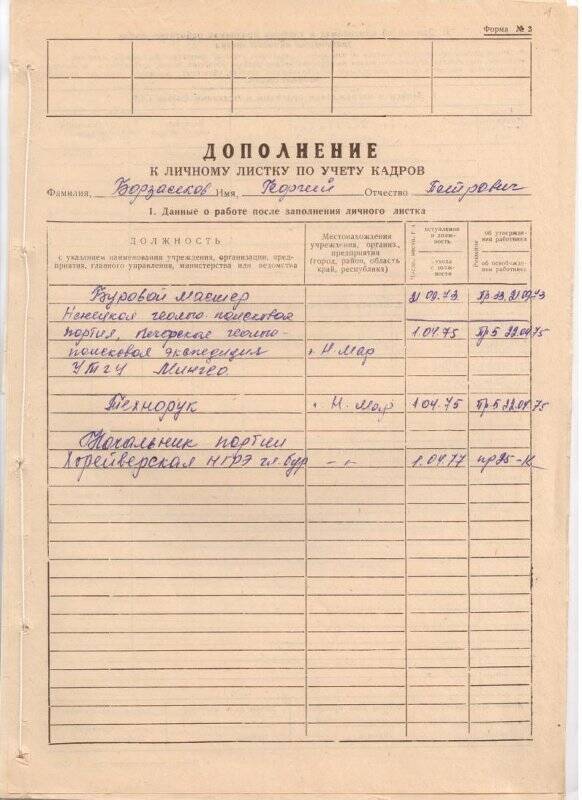 Форма № 2
ДОПОЛНЕНИЕ
К ЛИЧНОМУ ЛИСТКУ ПО УЧЕТУ КАДРОВ
Фамилия, Борзасеков Имя, Георгий Отчество Петрович
1. Данные о работе после заполнения личного листка
ДОЛЖНОСТЬ
с указанием наименования учреждения, организации, предприятия, главного управления, министерства или ведомства
Местонахождения учреждения, организ., предприятия (город, район, область край, республика)
вступления в должность
ухода с должности
об утверждении работника
об освобождении работника
Буровой мастер 21 09.73 Пр 21.09.73
Ненецкая геолого-поисковая
партия, Печорская геолого- 1.04.75 Пр 5 22.04.75
поисковая экспедиция Н. Мар
УТГУ Мингео.
Технорук Н. Мар 1 04.75 Пр 5 22.04.75
Начальник партии
Хорейверская НГРЭ гл. бур -"- 1.04.77 пр 25-к